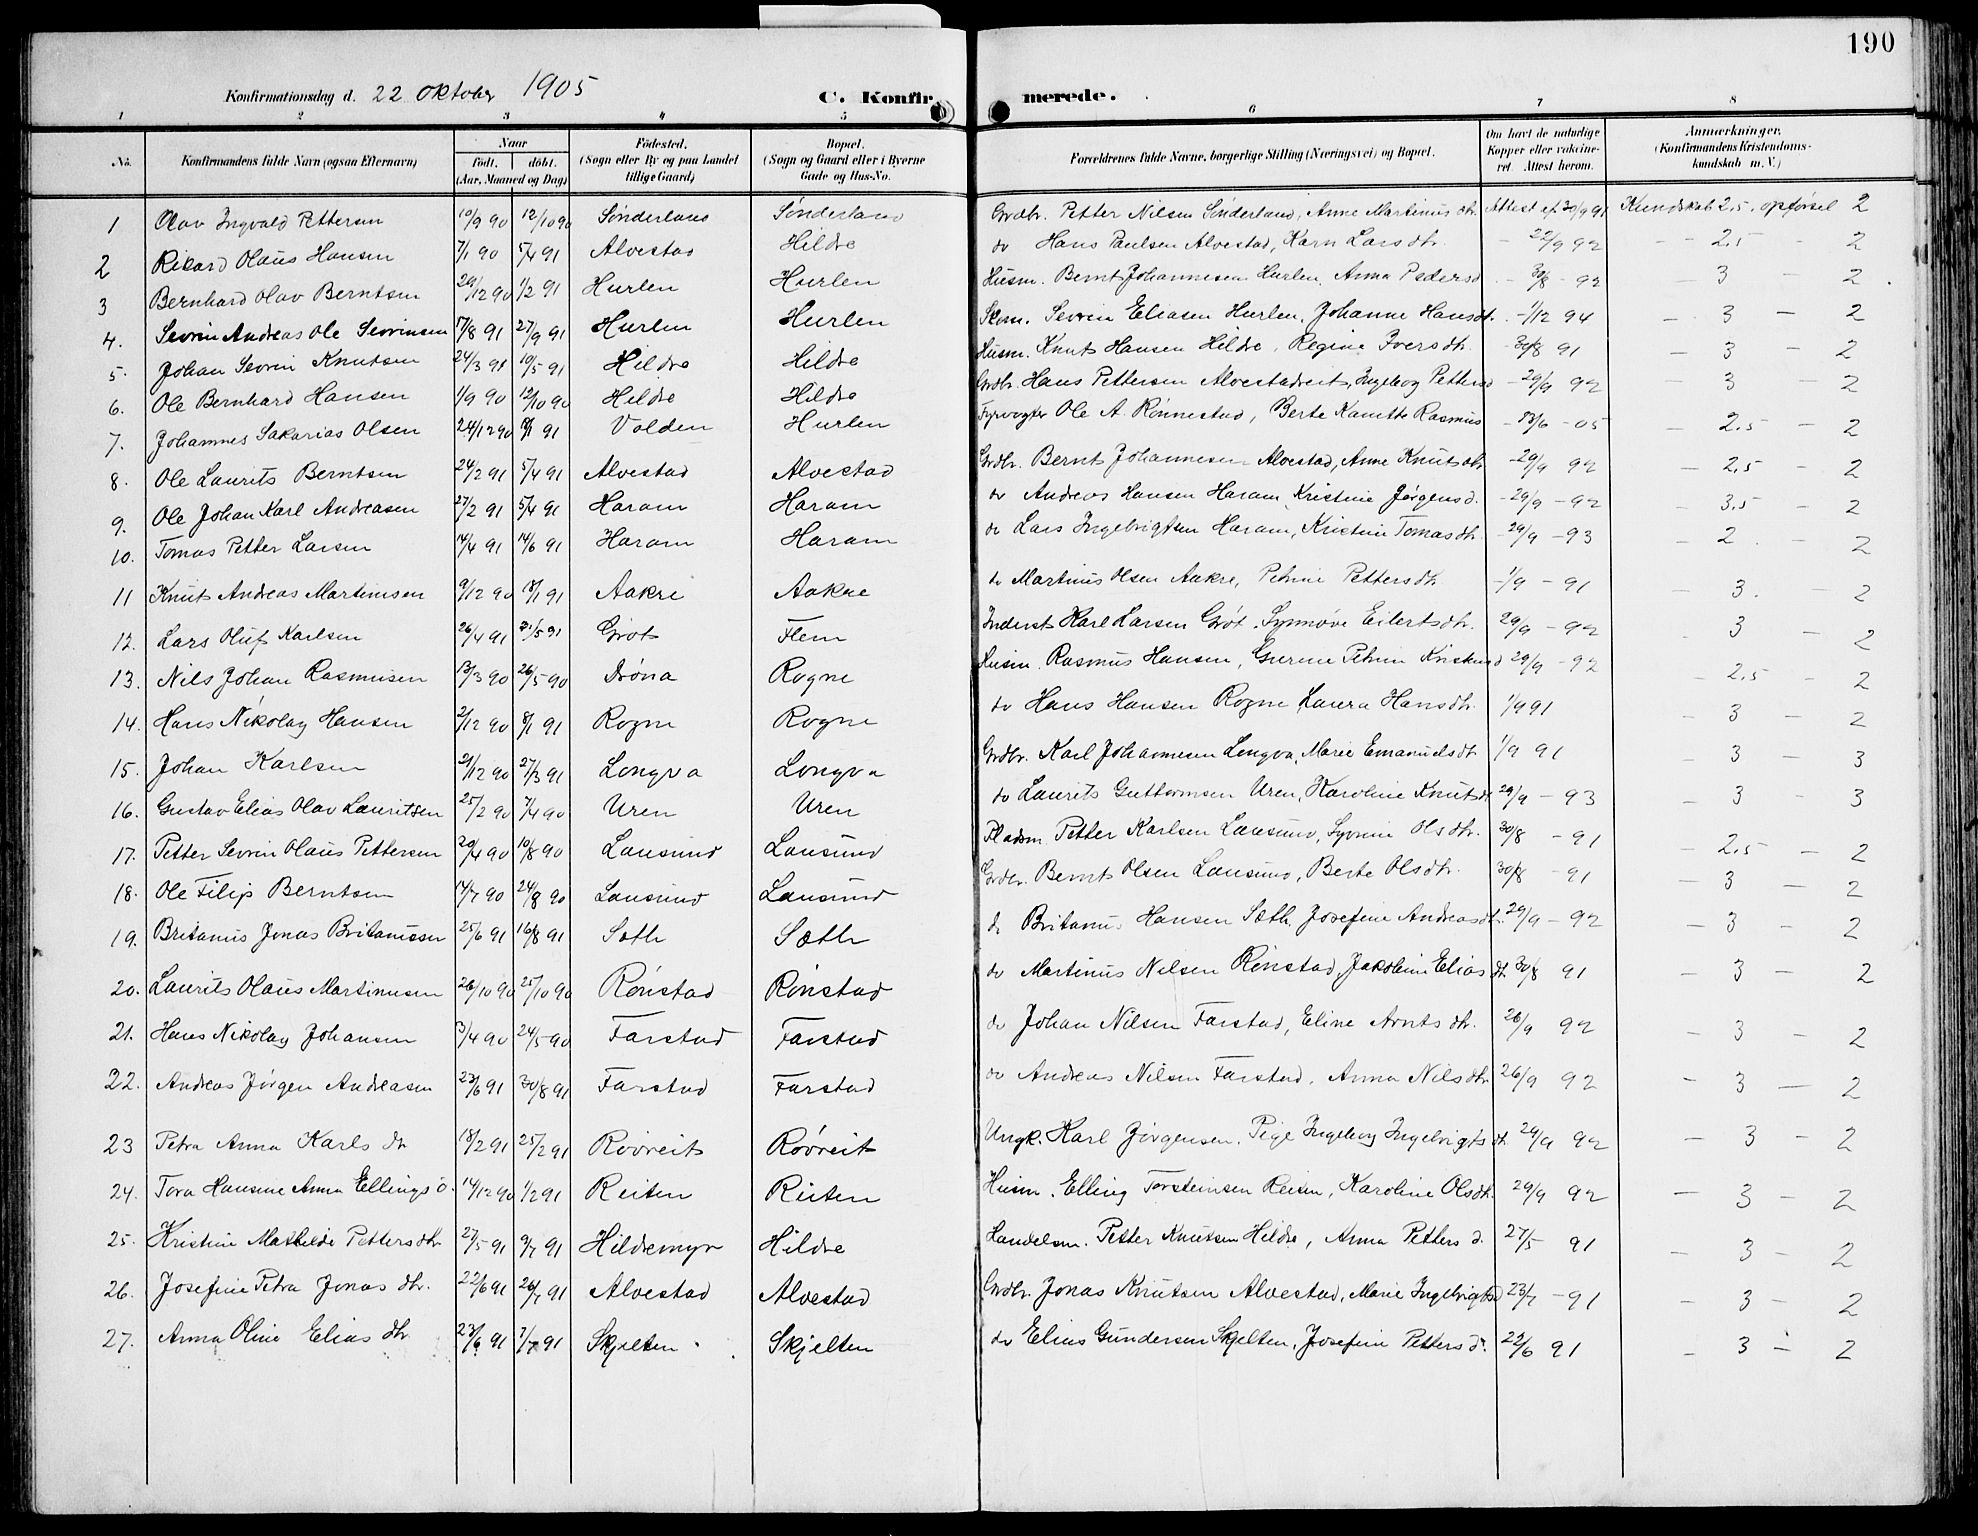 190
Konfirmationsdag d. 22 Oktober 1905 C. Konfirmerede.
1 2 3 4 5 6 7 8
No. Konfirmandens fulde Navn (ogsaa Efternavn) Naar født, døbt. (Aar, Maaned og Dag) Fødested. (Sogn eller By og paa Landet tillige Gaard) Bopæl. (Sogn og Gaard eller i Byerne Gade og Hus-No. Forældrenes fulde Navne, borgerlige Stilling (Næringsvei) og Bopæl. Om havt de naturlige Kopper eller vaccineret. Attest herom. Anmærkninger. (Konfirmandens Kristendomskundskab m. V.)
1 Olav Ingvald Pettersen 10/9 90 12/10 90 Sønderland Sønderland Grdbr. Petter Nilsen Sønderland, Anne Martinus dtr. Attest af 30/9 91 Kundskab 2.5. opførsel 2
2 Rikard Olaus Hansen 7/1 90 5/4 91 Alvestad Hildre do Hans Paulsen Alvestad, Karn Lars dtr. - 22/9 92 - - 2.5 - 2
3 Bernhard Olav Berntsen 29/12 90 1/2 91 Hurlen Hurlen Husm. Bernt Johannesen Hurlen, Anna Pedersd - 30/8 - 92 - 3 - 2
4. Sevrin Andreas Ole Sevrinsen 17/8 91 27/9 91 Hurlen Hurlen Skom. Sevrin Eliasen Hurlen, Johanne Hansdt. - 1/12 94 - 3 - 2
5. Johan Sevrin Knutsen 24/3 91 10/5 91 Hildre Hildre Husm. Knut Hansen Hildre, Regine Iversdtr. - 30/8 91 - 3 - 2
6. Ole Bernhard Hansen 1/9 90 12/10 90 Hildre Hildre Grdbr. Hans Pettersen Alvestadreit, Ingeborg Pettersd - 29/9 92 - 3 - 2
7. Johannes Sakarias Olsen 24/12 90 8/1 91 Volden Hurlen Fyrvogter Ole A. Rønnestad, Berte Kanutte Rasmus - 13/6 - 05 - 2.5 - 2
8. Ole Laurits Berntsen 24/2 91 5/4 91 Alvestad Alvestad Grdbr. Bernt Johannesen Alvestad, Anne Knutsdtr - 29/9 92 - 2.5 - 2
9. Ole Johan Karl Andreasen 27/2 91 5/4 91 Haram Haram do Andreas Hansen Haram, Kristine Jørgensd. - 29/9 - 92 - 3.5 - 2
10. Tomas Petter Larsen 14/4 91 14/6 91 Haram Haram do Lars Ingebrigtsen Haram, Kristine Tomasdtr. - 29/9 - 93 - 2. - 2
11 Knut Andreas Martinusen 9/12 90 18/1 91 Aakre Aakre do Martinus Olsen Aakre, Petrine Pettersdtr. - 1/9 - 91 - 3. - 2
12. Lars Oluf Karlsen 26/4 91 31/5 91 Grøt Flem Inderst Karl Larsen Grøt, Synnøve Eilertsdtr. 29/9 - 92 - 3 - 2
13. Nils Johan Rasmusen 13/3 90 26/5 90 Drøna Rogne Husm. Rasmus Hansen, Petrine 29/9 - 92 - 2.5 - 2
14. Hans Nikolay Hansen 2/12 90 8/1 91 Rogne Rogne do Hans Hansen Rogne, Laura Hansdtr. 1/9 91 - 3 - 2
15. Johan Karlsen 21/12 90 27/3 91 Longva Longva Grdbr. Karl Johannesen Longva, Marie Emanuelsdtr 1/9 91 - 3 - 3
16. Gustav Elias Olav Lauritsen 25/2 90 7/4 90 Uren Uren do Laurits Guttormsen Uren, Karoline Knutsdt 29/9 - 93 - 3 - 3
17. Petter Sevrin Olaus Pettersen 20/4 90 10/8 90 Lausund Lausund Pladsm. Petter Karlsen Lausund, Olsdtr. 30/8 - 91 - 2.5 - 2
18. Ole Filip Berntsen 14/7 90 24/8 90 Lausund Lausund Grdbr. Bernt Olsen Lausund, Berte Olsdtr. 30/8 - 91 - 3 - 2
19. Britanus Jonas Britanusen 25/6 91 16/8 91 Sæth Sæth do Britanus Hansen Sæth, Josefine Andreasdt. 29/9 - 92 - 3 - 2
20. Laurits Olaus Martinusen 26/10 90 25/10 90 Rønstad Rønstad do Martinus Nilsen Rønstad, Jakobine Elias dt. 30/8 91 - 3 - 2
21. Hans Nikolay Johansen 3/4 90 24/5 90 Farstad Farstad do Johan Nilsen Farstad, Eline Arntsdtr. 26/9 92 - 3 - 2
22. Andreas Jørgen Andreasen 23/6 91 30/8 91 Farstad Farstad do Andreas Nilsen Farstad, Anna Nilsdtr 26/9 92 - 3 - 2
23 Petra Anna Karls dtr 18/2 91 25/2 91 Røvreit Røvreit Ungk. Karl Jørgensen, Pige Ingeborg Ingebrigts dt. 29/9 92 - 3 - 2
24. Tora Hansine Anna Ellings d. 14/12 90 1/2 91 Reiten Reiten Husm. Elling Torsteinsen Reiten, Karoline Olsdtr. 29/9 92 - 3 - 2
25. Kristine Mathilde Pettersdtr 27/5 91 9/7 91 Hildremyr Hildre Handelsm. Petter Knutsen Hildre, Anna Petters d. 27/5 91 - 3 - 2
26. Josefine Petra Jonas dtr. 22/6 91 26/7 91 Alvestad Alvestad Grdbr. Jonas Knutsen Alvestad, Marie Ingebrigtsd 23/7 - 91 - 3 - 2
27. Anna Oline Elias dtr 23/6 91 7/7 91 Skjelten Skjelten do Elias Gundersen Skjelten, Josefine Petters d. 22/6 91 - 3 - 2